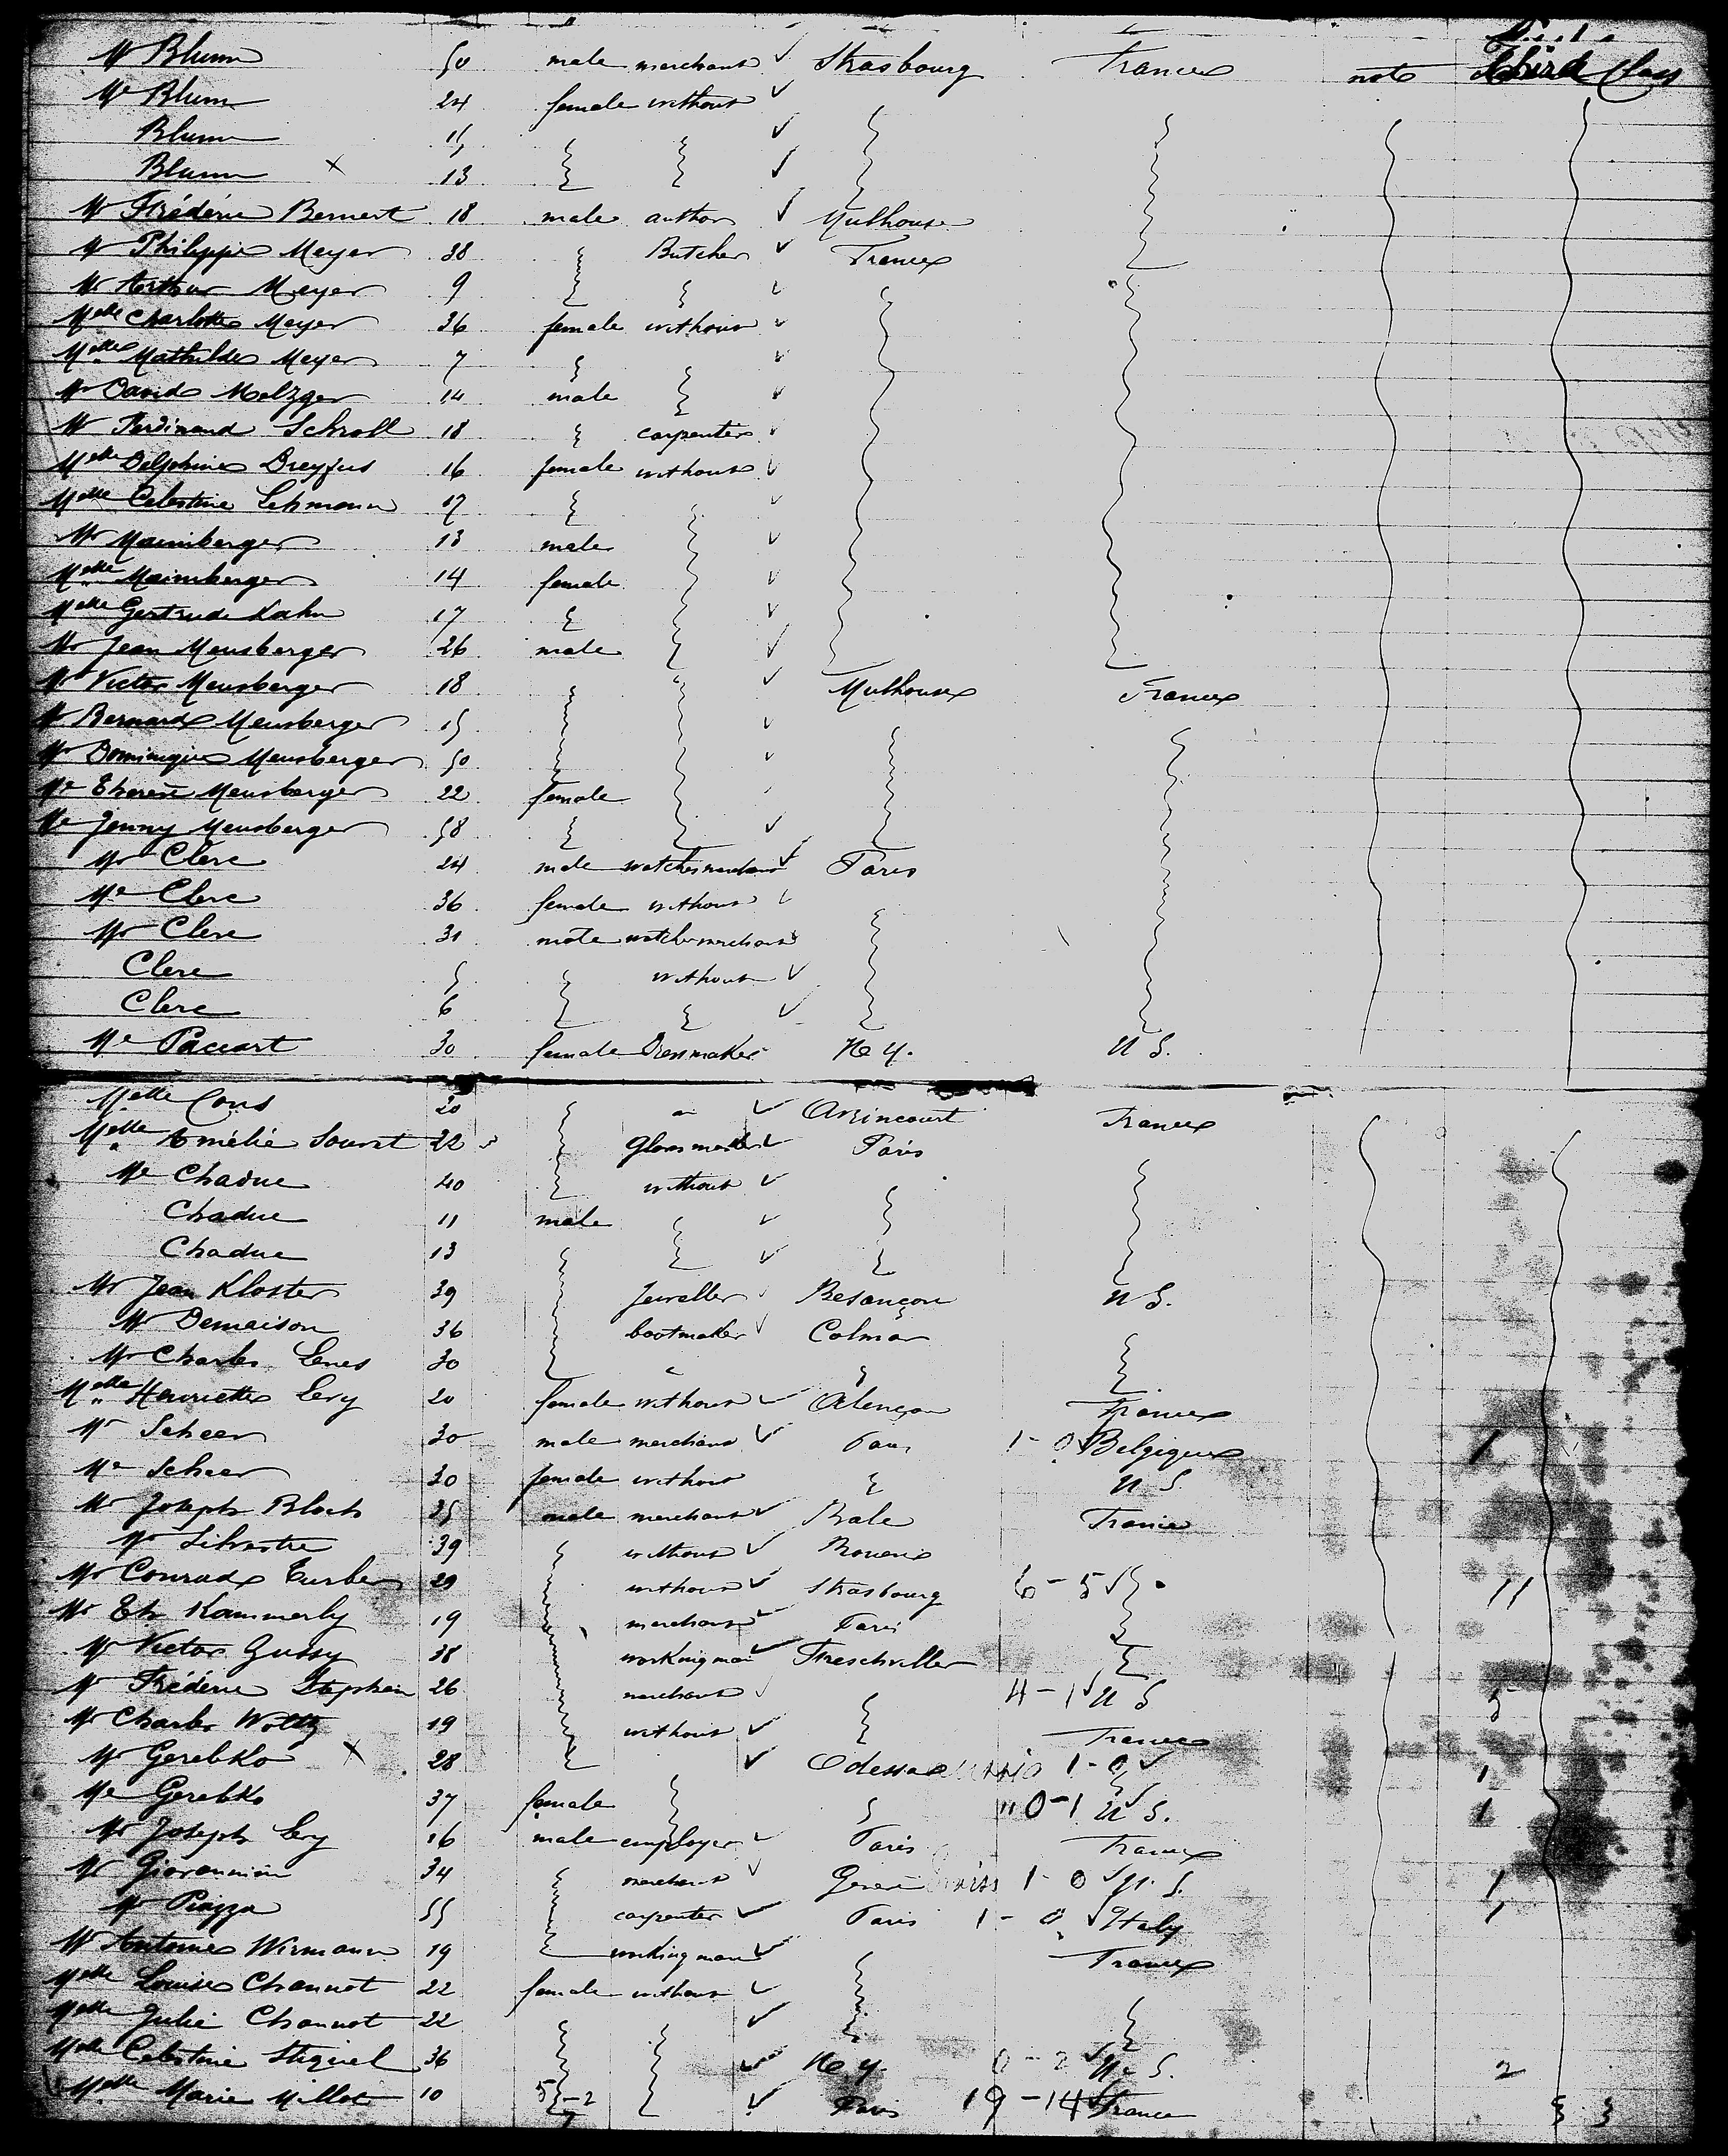 Mr Blum 50 male merchant ✓ Strasbourg France note Third Class
Me Blum 24 female without ✓
Blum ✓
Blum × 13 ✓
Mr Frédéric Bernert 18 male author ✓ Mulhouse
Mr Philippe Meyer 38 Butcher ✓ France
Mr Arthur Meyer 9
Melle Charlotte Meyer 36 female without
Melle Mathilde Meyer 7
Mr David Metzger 14 male
Mr Ferdinand Schroll 18 carpenter
Melle Delphine Dreyfus 16 female without
Melle Celestine Lehmann 17
Mr Maimberger 13 male
Melle Maimberger 14 female
Melle Gertrude Kahn 17
Mr Jean Meusberger 26 male
Mr Victor Meusberger 18 Mulhouse France
Mr Bernard Meusberger 15
Mr Dominique Meusberger 50
Me Therese Meusberger 22 female
Me Jenny Meusberger 58
Mr Clerc 24 male watchesmerchant Paris
Me Clerc 36 female without
Mr Clerc 31 male watchesmerchant
Clerc 5 without ✓
Clerc 6 ✓
Me Paccart 30 female Dressmaker N. Y. U S.
Melle Cons 20 ✓ Avincourt France
Melle Amélie Souret 22 ✓ Paris
Me Chadue 40 without ✓
Chadue 11 male ✓
Chadue 13 ✓
Mr Jean Kloster 39 Jeweller Besançon U S.
Mr Demaison 36 bootmaker Colmar
Mr Charles 30
Melle Henriette Levy 20 female without ✓ Alençon France
Mr Scheer 30 male merchant ✓ Paris 1-0 ✓ Belgique 1
Me Scheer 30 female without U S.
Mr Joseph Bloch 35 male merchant ✓ Bale France
Mr Silvestre 39 without ✓
Mr Conrad 29 without ✓ Strasbourg 6-5 ✓ 11
Mr Et. Kammerly 19 merchant ✓ Paris
Mr Victor Gussy 38 workingman ✓
Mr Frédéric Stephan 26 merchant ✓ 4-1 ✓ U S 5
Mr Charles Woltz 19 without ✓ France
Mr Gerebko × 28 ✓ Odessa 1-0 ✓ 1
Me Gerebko 37 female " 0-1 ✓ U S. 1
Mr Joseph Levy 16 male employer ✓ Paris France
Mr Giovannini 34 merchant ✓ 1-0 ✓ U. S. 1
Mr Piazza 55 carpenter ✓ Paris 1-0 ✓ Italy 1
Mr Antoine Wirmann 19 workingman ✓ France
Melle Louise Channot 22 female without ✓
Melle Julie Channot 22 ✓
Melle Celestine Stiquel 36 ✓ N. Y. 0-2 ✓ U. S. 2
Melle Marie Millot 10 5-2 ✓ Paris 19-14 ✓ France